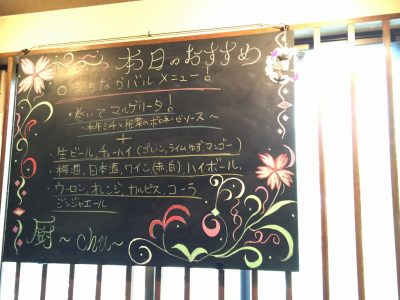 本日のおすすめ
○まちなかバルメニュー!
・巻いてマルゲリータ!
～和牛ミンチと花菜のボロネーゼソース～
+
生ビール、チューハイ(プレーン、ライム、ゆず、マンゴー)
・梅酒、日本酒、ワイン(赤、白)、ハイボール、
・ウーロン、オレンジ、カルピス、コーラ
ジンジャエール
厨～chu～